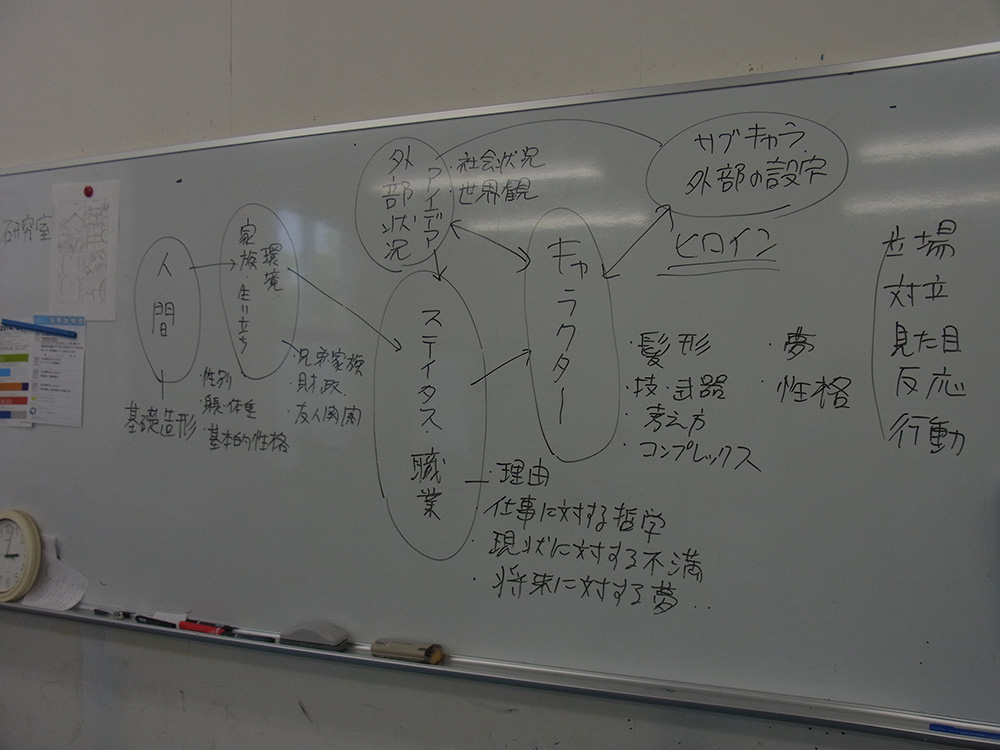 研究室
人間
基礎造形
・性別
・体重
・基本的性格
環境
家族・生い立ち
・兄弟家族
・財政
・友人関係
外部状況
アイデア
・社会状況
・世界観
ステイタス・職業
・理由
・仕事に対する哲学
・現状に対する不満
・将来に対する夢・・
キャラクター
・髪形
・技・武器
・考え方
・コンプレックス
・夢
・性格
サブキャラ
外部の設定
ヒロイン
立場
対立
見た目
反応
行動